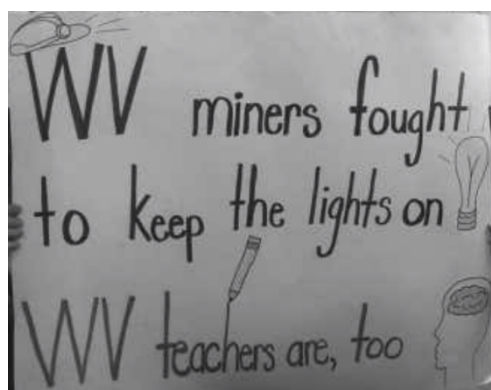 WV miners fought
to keep the lights on
WV teachers are, too